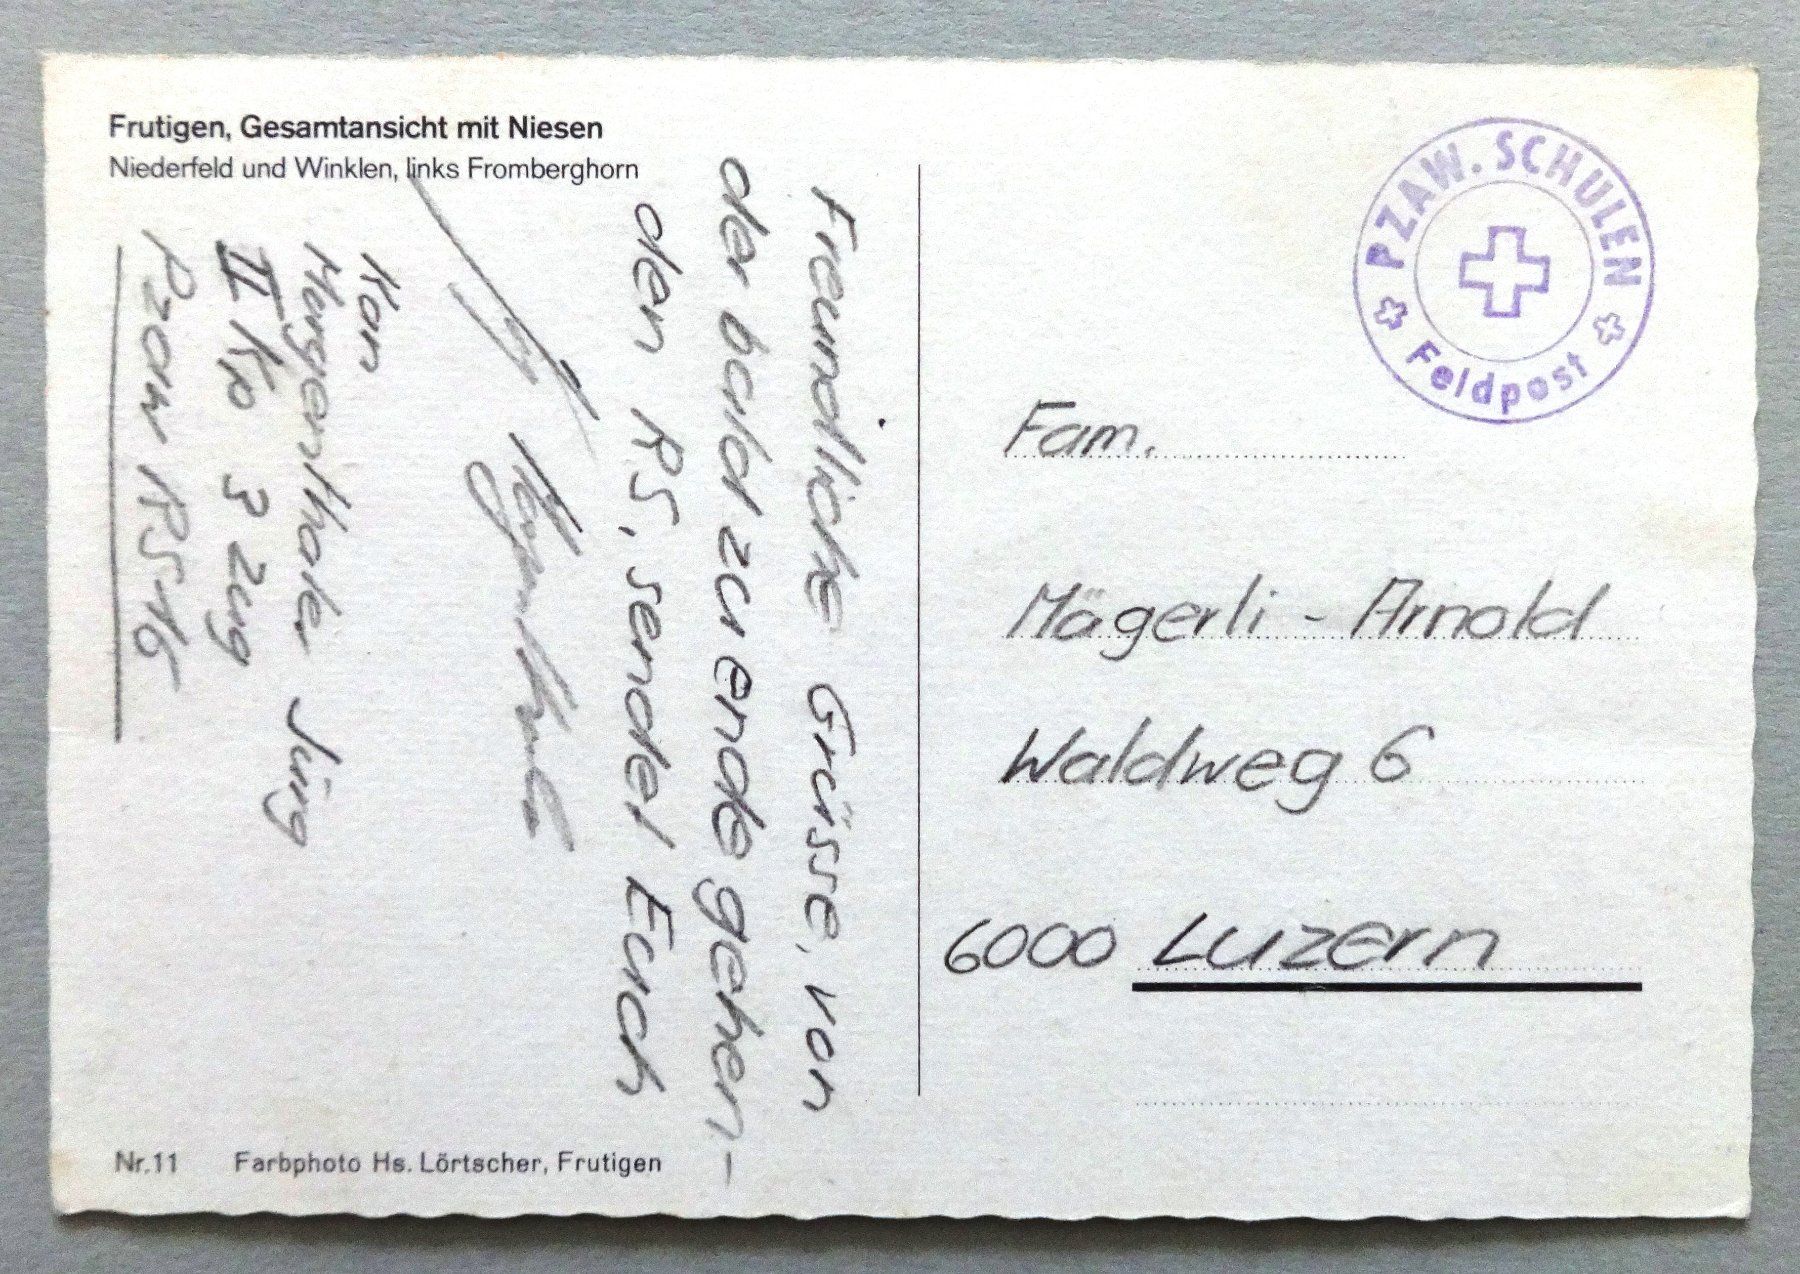 Frutigen, Gesamtansicht mit Niesen
Niederfeld und Winklen, links Fromberghorn
Freundliche Grüsse, von
der bald zu ende gehen-
den RS, sendet Euch
Kan
Morgenthaler Jürg
II Kp 3 Zug
Pzaw RS 16
PZAW. SCHULEN
Feldpost
Fam.
Mägerli - Arnold
Waldweg 6
6000 Luzern
Nr.11 Farbphoto Hs. Lörtscher, Frutigen